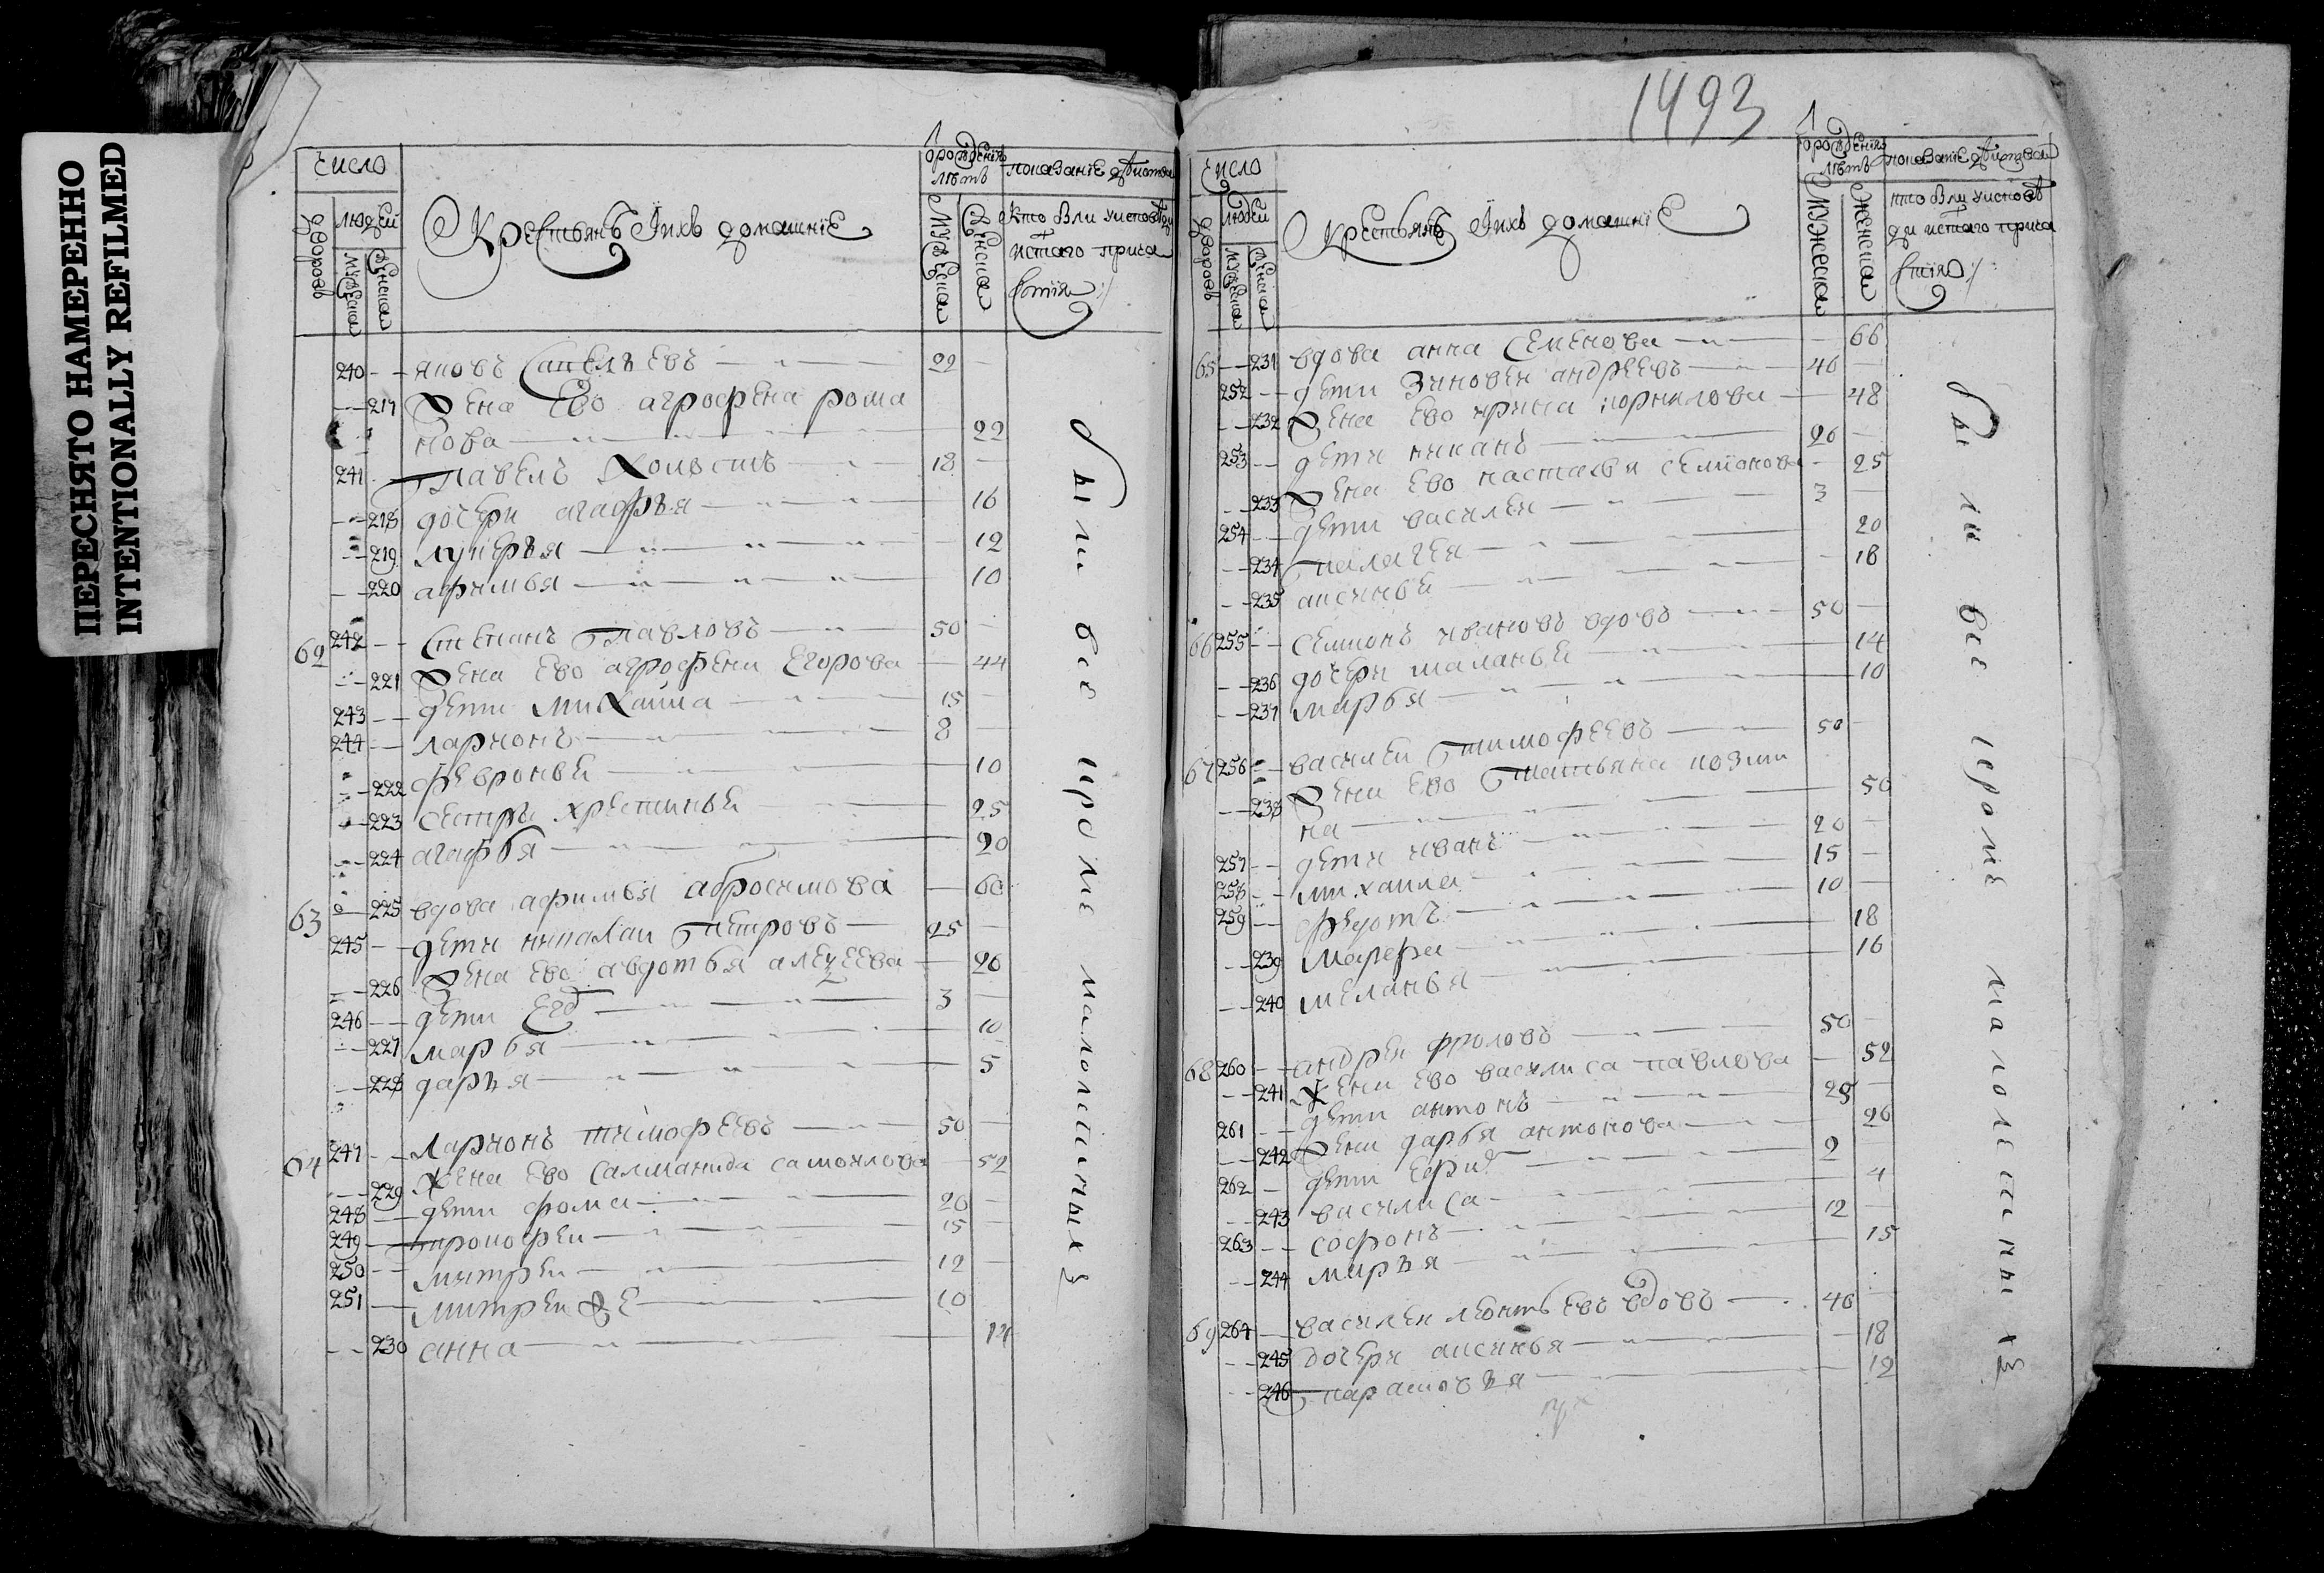 ПЕРЕСНЯТО НАМЕРЕННО
INTENTIONALLY REFILMED
число
дворовъ
людей
мужеска
женска
Крестьянъ Їихъ домашнїе
ѿ рожденїя
лѣтъ
мужеска
женска
показанїе дѣйства
кто былъ у исповѣди
и с̃таго прича
стїя :/
240 яковъ савельевъ 22
217 Жена Ево агрофена рома
нова 22
241 Павелъ Холостъ 18
218 дочери агафья 16
219 лукерья 12
220 афимья 10
62 242 Степанъ Павловъ 50
221 Жена Ево агрофена Егорова 44
243 дети михаила 15
244 ларионъ 8
222 февронья 10
223 сестры христинья 25
224 агафья 20
63 225 вдова афимья абросимова 60
245 дети никалаи Петровъ 25
226 Жена Ево авдотья алеѯеева 26
246 дети Егоръ 3
227 марья 10
228 дарья 5
64 247 Ларионъ тимофеевъ 50
229 Жена Ево саломанида самоилова 52
248 дети фома 20
249 прокофеи 15
250 митреи 12
251 митреи жЕ 10
230 анна 14
были все кроме малолетныхъ
1493
число
дворовъ
людей
мужеска
женска
Крестьянъ Їихъ домашнїЕ
ѿ рожденїя
лѣтъ
мужеска
женска
показанїе дѣйства
кто былъ у исповѣ
ди и с̃таго прича
стїя :/
65 231 вдова анна семенова 66
252 дети Зиновеи андреевъ 46
232 Жена Ево ирина корнилова 48
253 дети никанъ 26
233 Жена Ево настасья семионова 25
254 дети василеи 3
234 Пелагея 20
235 аксинья 18
66 255 семионъ ивановъ вдовъ 50
236 дочери маланья 14
237 марья 10
67 256 василеи Тимофеевъ 50
238 Жена Ево Татьяна козми
на 50
257 дети иванъ 20
258 михаила 15
259 федотъ 10
239 марефа 18
240 меланья 16
68 260 андреи фроловъ 50
241 Жена Ево василиса павлова 52
261 дети антонъ 25
242 Жена дарья антонова 26
262 дети 2
243 василиса 4
263 софонъ 12
244 марья 15
69 264 василеи леонтьевъ вдовъ 46
245 дочери аксинья 18
246 парасковья 12
были все кроме малолетныхъ